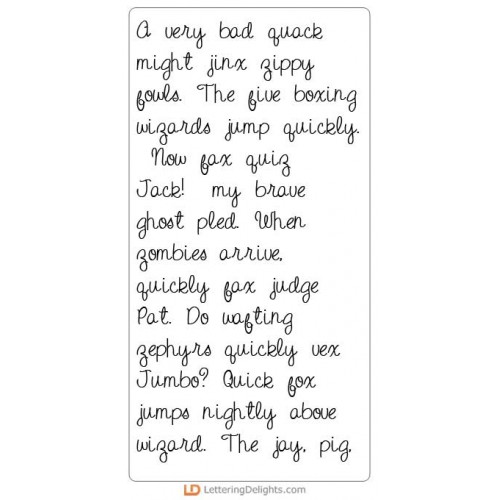 A very bad quack
might jinx zippy
fowls. The five boxing
wizards jump quickly.
Now fax quiz
Jack! my brave
ghost pled. When
zombies arrive,
quickly fax judge
Pat. Do wafting
zephyrs quickly vex
Jumbo? Quick fox
jumps nightly above
wizard. The jay, pig,
LD LetteringDelights.com